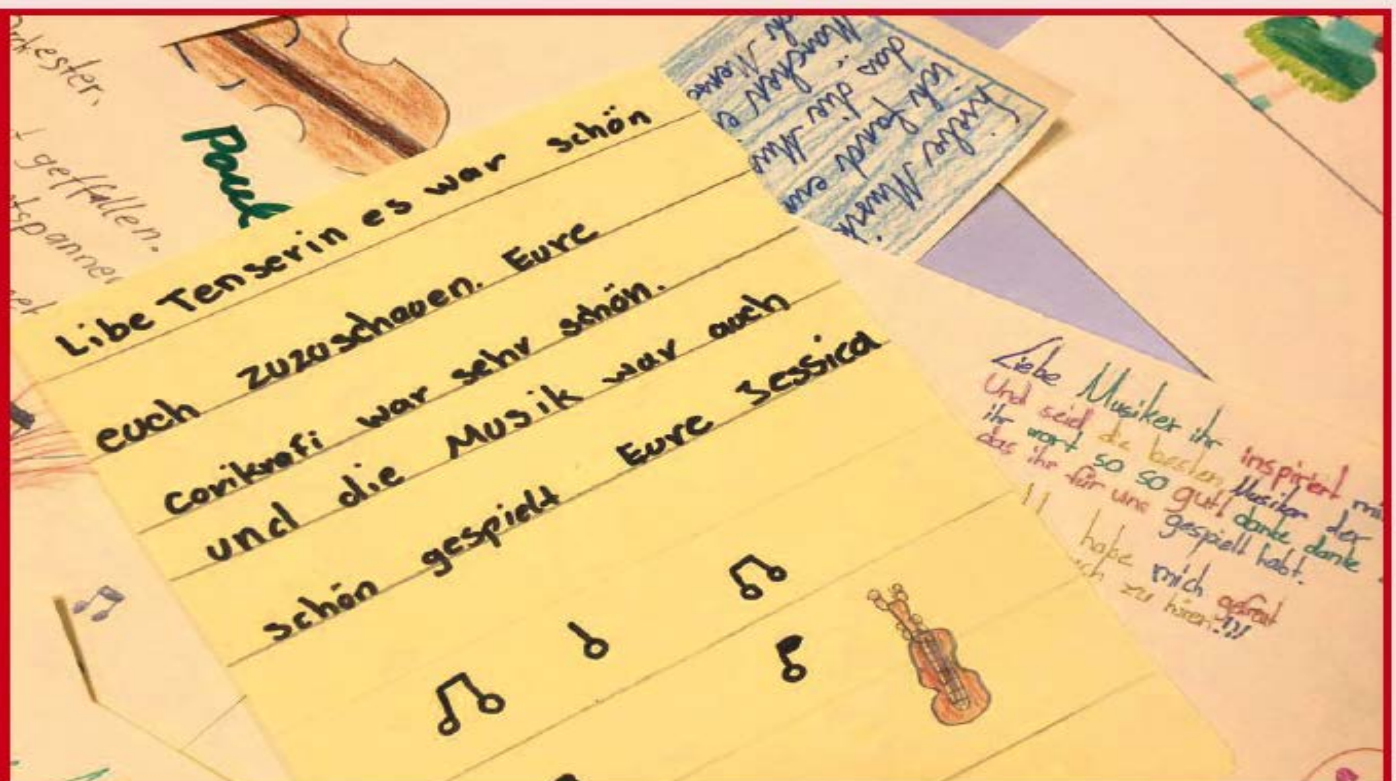 rkester.
t geffallen.
tspannen
Paul
Libe Tenserin es war schön
euch zuzuschauen. Eure
corikrafi war sehr schön.
und die Musik war auch
schön gespielt Eure Jessica
Liebe Musik
ich fand
das die Mus
Manchen
Liebe Musiker ihr inspiriert mi
Und seid die besten Musiker der
ihr wart so so gut! danke danke
das ihr für uns gespielt habt.
habe mich gefreut
ch zu hören!!!